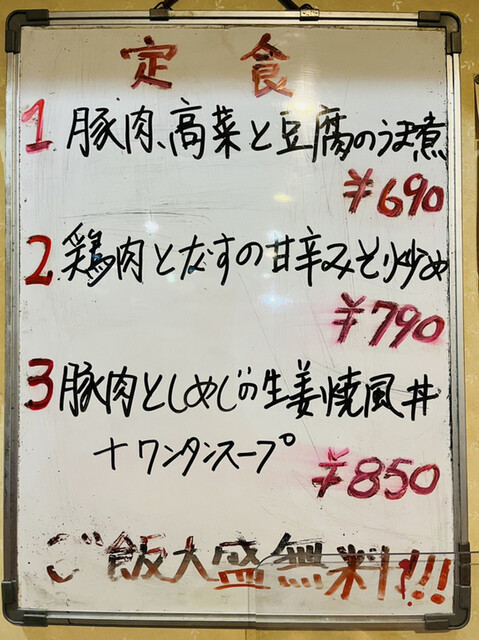 定食
1 豚肉、高菜と豆腐のうま煮
¥690
2 鶏肉となすの甘辛みそ炒め
¥790
3 豚肉としめじの生姜焼風丼
+ワンタンスープ
¥850
ご飯大盛無料!!!